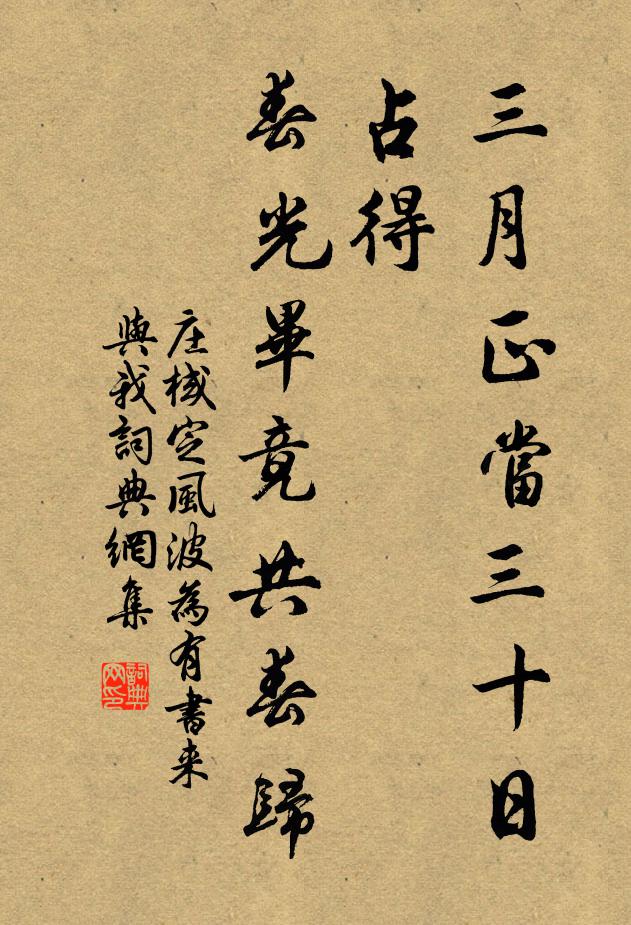 三月正當三十日
占得
春光畢竟共春歸
庄棫定風波為有書来
與我詞典網集
詞典
网印